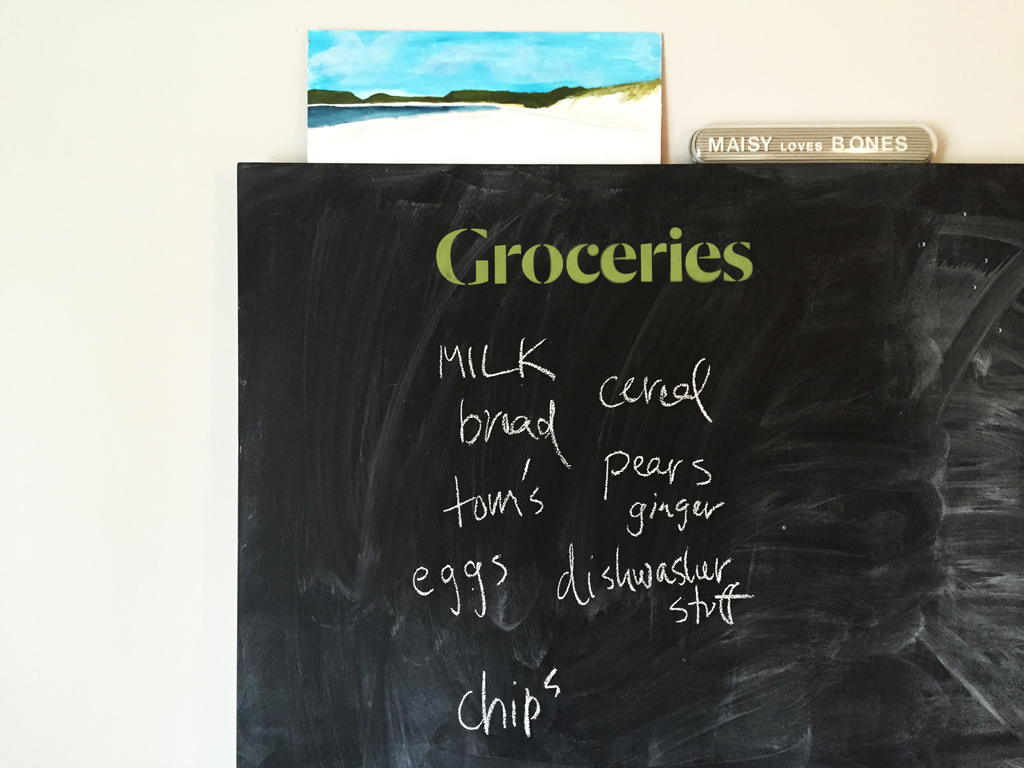 MAISY LOVES BONES
Groceries
MILK
bread
tom's
eggs
chips
cereal
pears
ginger
dishwasher
stuff